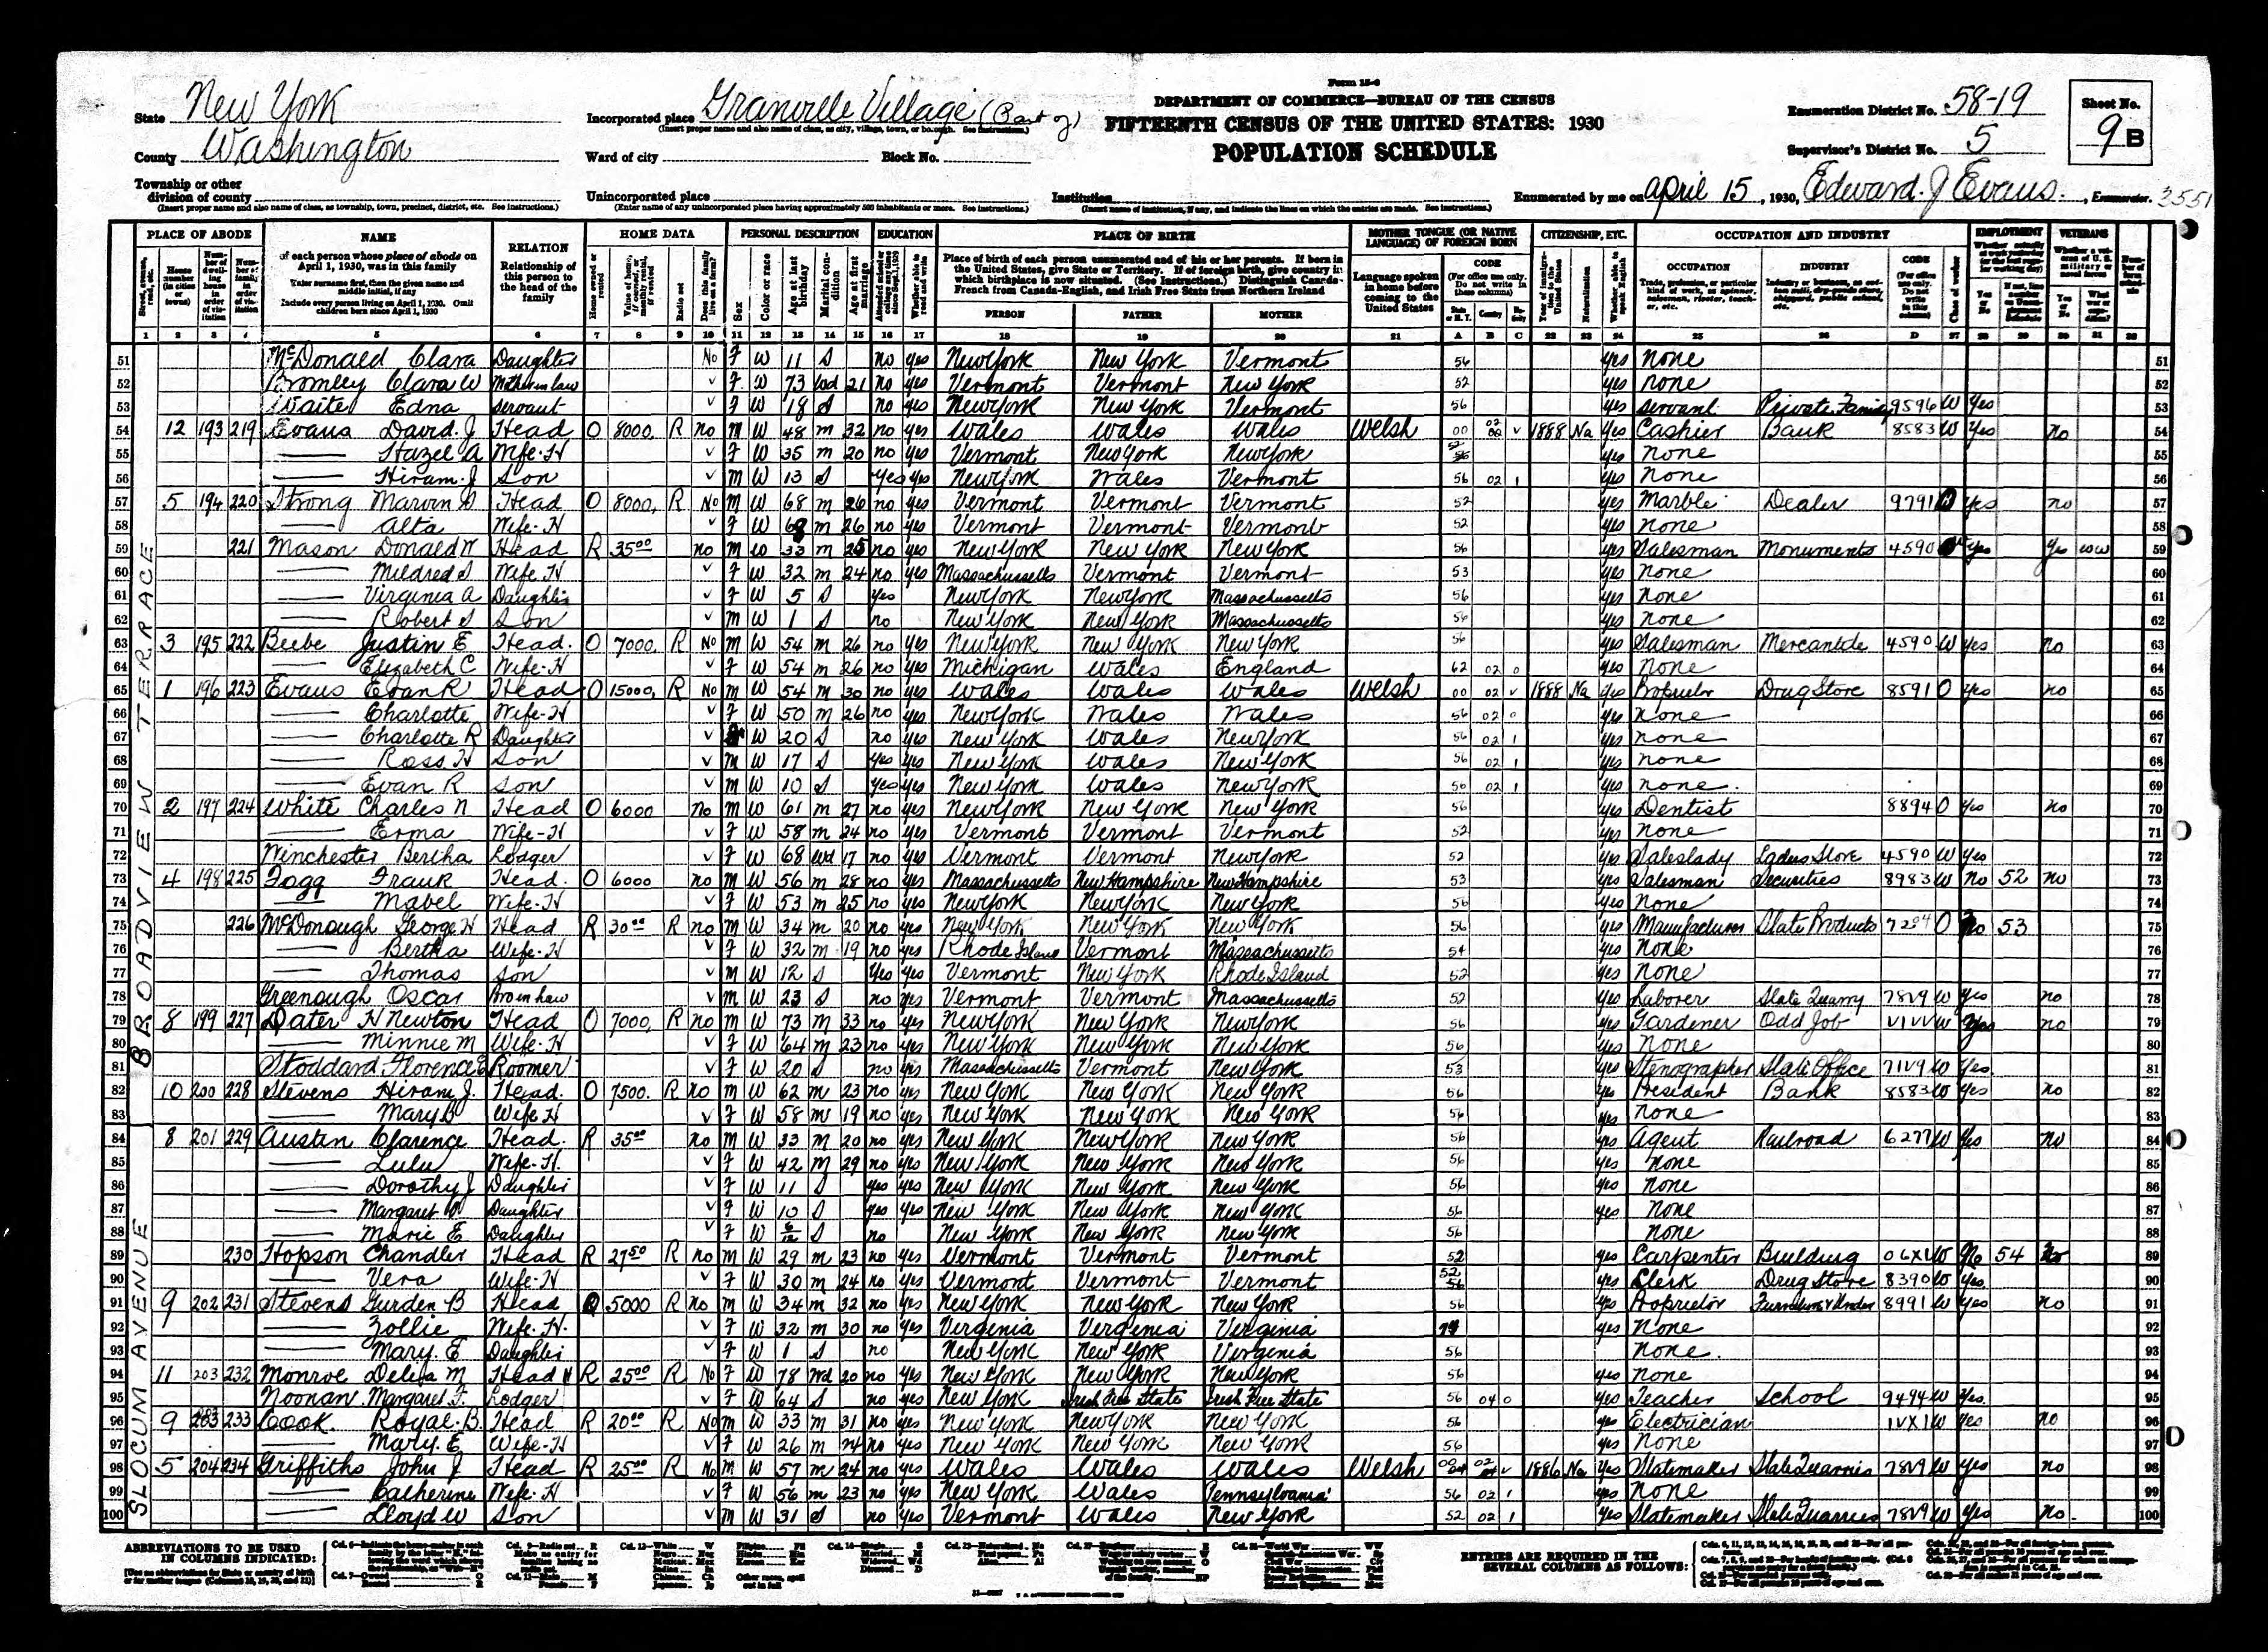 Form 15-6
DEPARTMENT OF COMMERCE—BUREAU OF THE CENSUS
FIFTEENTH CENSUS OF THE UNITED STATES: 1930
POPULATION SCHEDULE
State New York
County Washington
Township or other division of county
(Insert proper name and also name of class, as township, town, precinct, district, etc. See instructions.)
Incorporated place Granville Village (Part of)
(Insert proper name and also name of class, as city, village, town, or borough. See instructions.)
Ward of city Block No.
Unincorporated place
(Enter name of any unincorporated place having approximately 500 inhabitants or more. See instructions.)
Institution
(Insert name of institution, if any, and indicate the lines on which the entries are made. See instructions.)
Enumeration District No. 58-19
Supervisor's District No. 5
Sheet No. 9 B
Enumerated by me on April 15, 1930, Edward. J Evans., Enumerator. 3551
PLACE OF ABODE NAME RELATION HOME DATA PERSONAL DESCRIPTION EDUCATION PLACE OF BIRTH MOTHER TONGUE (OR NATIVE LANGUAGE) OF FOREIGN BORN CITIZENSHIP, ETC. OCCUPATION AND INDUSTRY EMPLOYMENT VETERANS
of each person whose place of abode on April 1, 1930, was in this family
Enter surname first, then the given name and middle initial, if any
Include every person living on April 1, 1930. Omit children born since April 1, 1930
Relationship of this person to the head of the family
Place of birth of each person enumerated and of his or her parents. If born in the United States, give State or Territory. If of foreign birth, give country in which birthplace is now situated. (See Instructions.) Distinguish Canada-French from Canada-English, and Irish Free State from Northern Ireland
PERSON FATHER MOTHER
Language spoken in home before coming to the United States
CODE
OCCUPATION INDUSTRY CODE
BROADVIEW TERRACE
51 McDonald Clara Daughter No F W 11 S no yes New York New York Vermont 56 yes none 51
52 Bromley Clara W Mother in law v F W 73 Wd 21 no yes Vermont Vermont New York 52 yes none 52
53 Waite Edna Servant v F W 18 S no yes New York New York Vermont 56 yes Servant Private Family 9596 W Yes 53
54 12 193 219 Evans David. J Head O 8000, R no M W 48 m 32 no yes Wales Wales Wales Welsh 00 02 v 1888 Na Yes Cashier Bank 8583 W Yes no 54
55 Hazel A Wife-H v F W 35 m 20 no yes Vermont New York New York 52 yes none 55
56 Hiram. J Son v M W 13 S Yes yes New York Wales Vermont 56 02 1 yes none 56
57 5 194 220 Strong Marvin Head O 8000, R No M W 68 m 26 no yes Vermont Vermont Vermont 52 yes Marble Dealer 9791 yes no 57
58 Alta Wife-H v F W m 26 no yes Vermont Vermont Vermont 52 yes none 58
59 221 Mason Donald W Head R 35.00 no M W 33 m 25 no yes New York New York New York 56 yes Salesman Monuments 4590 yes Yes WW 59
60 Mildred S Wife H v F W 32 m 24 no yes Massachusetts Vermont Vermont 53 yes none 60
61 Virginia A Daughter v F W 5 S yes New York New York Massachusetts 56 yes none 61
62 Robert S Son v M W 1 S no New York New York Massachusetts 56 yes none 62
63 3 195 222 Beebe Justin E Head. O 7000, R No M W 54 m 26 no yes New York New York New York 56 yes Salesman Mercantile 4590 W yes no 63
64 Elizabeth C Wife-H v F W 54 m 26 no yes Michigan Wales England 62 02 0 yes none 64
65 1 196 223 Evans Evan R Head O 15000, R No M W 54 m 30 no yes Wales Wales Wales Welsh 00 02 v 1888 Na yes Proprietor Drug Store 8591 O yes no 65
66 Charlotte Wife-H v F W 50 m 26 no yes New York Wales Wales 56 02 0 yes none 66
67 Charlotte R Daughter v W 20 S no yes New York Wales New York 56 02 1 yes none 67
68 Ross H Son v M W 17 S yes yes New York Wales New York 56 02 1 yes none 68
69 Evan R Son v M W 10 S yes yes New York Wales New York 56 02 1 yes none. 69
70 2 197 224 White Charles N Head O 6000 No M W 61 m 27 no yes New York New York New York 56 yes Dentist 8894 O yes no 70
71 Erma Wife-H v F W 58 m 24 no yes Vermont Vermont Vermont 52 yes none 71
72 Winchester Bertha Lodger v F W 68 Wd 17 no yes Vermont Vermont New York 52 yes Saleslady Ladies Store 4590 W yes 72
73 4 198 225 Fogg Frank Head. O 6000 no M W 56 m 28 no yes Massachusetts New Hampshire New Hampshire 53 yes Salesman Securities 8983 W no 52 no 73
74 Mabel Wife-H v F W 53 m 25 no yes New York New York New York 56 yes none 74
75 226 McDonough George H Head R 30.00 R no M W 34 m 20 no yes New York New York New York 56 yes Manufacturer Slate Products O no 53 75
76 Bertha Wife-H v F W 32 m 19 no yes Rhode Island Vermont Massachusetts 54 yes none 76
77 Thomas Son v M W 12 S Yes yes Vermont New York Rhode Island 52 yes none 77
78 Greenough Oscar Bro in law v M W 23 S no yes Vermont Vermont Massachusetts 52 yes Laborer Slate Quarry 78v9 W yes no 78
79 8 199 227 Dater H Newton Head O 7000, R no M W 73 M 33 no yes New York New York New York 56 yes Gardener Odd Job VIVV W yes no 79
80 Minnie M Wife-H v F W 64 m 23 no yes New York New York New York 56 yes none 80
81 Stoddard Florence E Roomer v F W 20 S no yes Massachusetts Vermont New York 53 yes Stenographer Slate Office 71v9 W yes. 81
82 10 200 228 Stevens Hiram J. Head. O 7500. R no M W 62 m 23 no yes New York New York New York 56 yes President Bank 8583 W yes no 82
83 Mary Wife H v F W 58 m 19 no yes New York New York New York 56 yes none 83
SLOCUM AVENUE
84 8 201 229 Austin Clarence Head. R 35.00 no M W 33 M 20 no yes New York New York New York 56 yes Agent Railroad 6277 W Yes no 84
85 Lulu Wife-H. v F W 42 M 29 no yes New York New York New York 56 yes none 85
86 Dorothy J Daughter v F W 11 S yes yes New York New York New York 56 yes none 86
87 Margaret Daughter v F W 10 S yes yes New York New York New York 56 yes none 87
88 Marie E Daughter v F W 6/12 S no New York New York New York 56 none 88
89 230 Hopson Chandler Head R 27.50 R no M W 29 m 23 no yes Vermont Vermont Vermont 52 yes Carpenter Building 06X1 W No 54 no 89
90 Vera Wife-H v F W 30 m 24 no yes Vermont Vermont Vermont 52 yes Clerk Drug Store 8390 W yes 90
91 9 202 231 Stevens Gurden B Head O 5000 R no M W 34 m 32 no yes New York New York New York 56 yes Proprietor Furniture & Under 8991 W yes no 91
92 Zollie Wife. H. v F W 32 m 30 no yes Virginia Virginia Virginia 74 yes none 92
93 Mary. E Daughter v F W 1 S no New York New York Virginia 56 none. 93
94 11 203 232 Monroe Delia M Head R 25.00 R No F W 78 Wd 20 no yes New York New York New York 56 yes none 94
95 Noonan Margaret F. Lodger v F W 64 S no yes New York Irish Free State Irish Free State 56 04 0 yes Teacher School 9494 W yes. 95
96 9 203 233 Cook. Royal. B. Head R 20.00 R No M W 33 m 31 no yes New York New York New York 56 yes Electrician IVX1 W yes no 96
97 Mary. E Wife-H v F W 26 m 24 no yes New York New York New York 56 yes none 97
98 5 204 234 Griffiths John J Head R 25.00 R No M W 57 m 24 no yes Wales Wales Wales Welsh 00 02 v 1886 Na yes Slatemaker Slate Quarries 78v9 W yes no 98
99 Catherine Wife. H v F W 56 m 23 no yes New York Wales Pennsylvania 56 02 1 yes none 99
100 Lloyd W Son v M W 31 S no yes Vermont Wales New York 52 02 1 yes Slatemaker Slate Quarries 78v9 W yes no. 100
ABBREVIATIONS TO BE USED IN COLUMNS INDICATED:
ENTRIES ARE REQUIRED IN THE SEVERAL COLUMNS AS FOLLOWS: